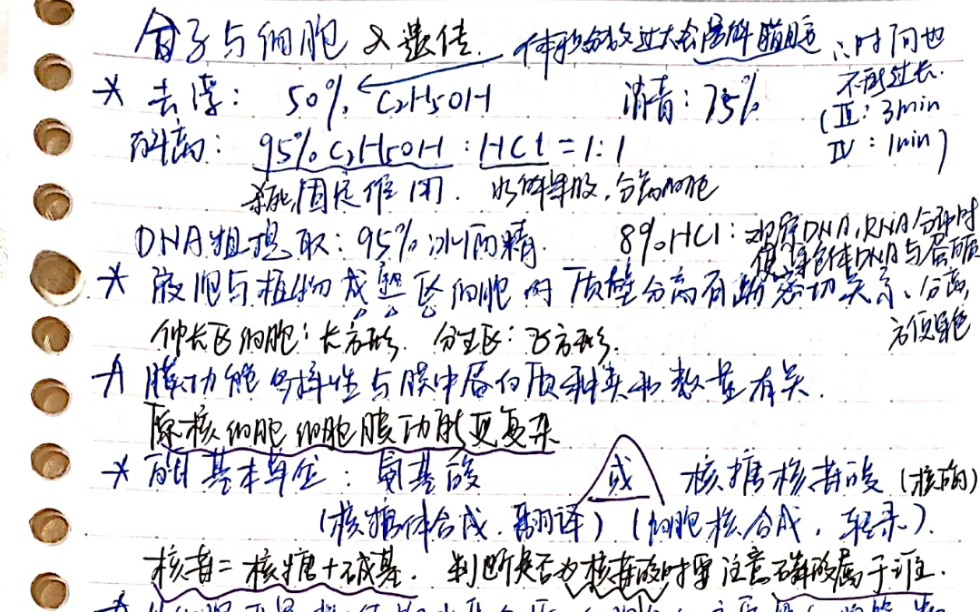 分子与细胞 及遗传. 体积分数过大会溶解脂肪 ∴时间也不能过长.
(Ⅲ: 3min
Ⅳ: 1min)
* 去浮: 50% C₂H₅OH 消毒: 75%
解离: 95% C₂H₅OH : HCl = 1:1
杀死,固定作用. 水解果胶,分离细胞
DNA粗提取: 95%冰酒精. 8%HCl: 观察DNA,RNA分布时
使染色体DNA与蛋白质分离,方便染色
* 液泡与植物成熟区细胞的质壁分离有着密切关系.
伸长区细胞: 长方形. 分生区: 正方形.
* 膜功能特异性与膜中蛋白质种类和数量有关.
原核细胞 细胞膜功能更复杂
* 酶基本单位: 氨基酸 或 核糖核苷酸 (核酶)
(核糖体合成. 翻译) (细胞核合成, 转录).
核苷 = 核糖 + 碱基. 判断是否为核苷酸时要注意磷酸属于谁.